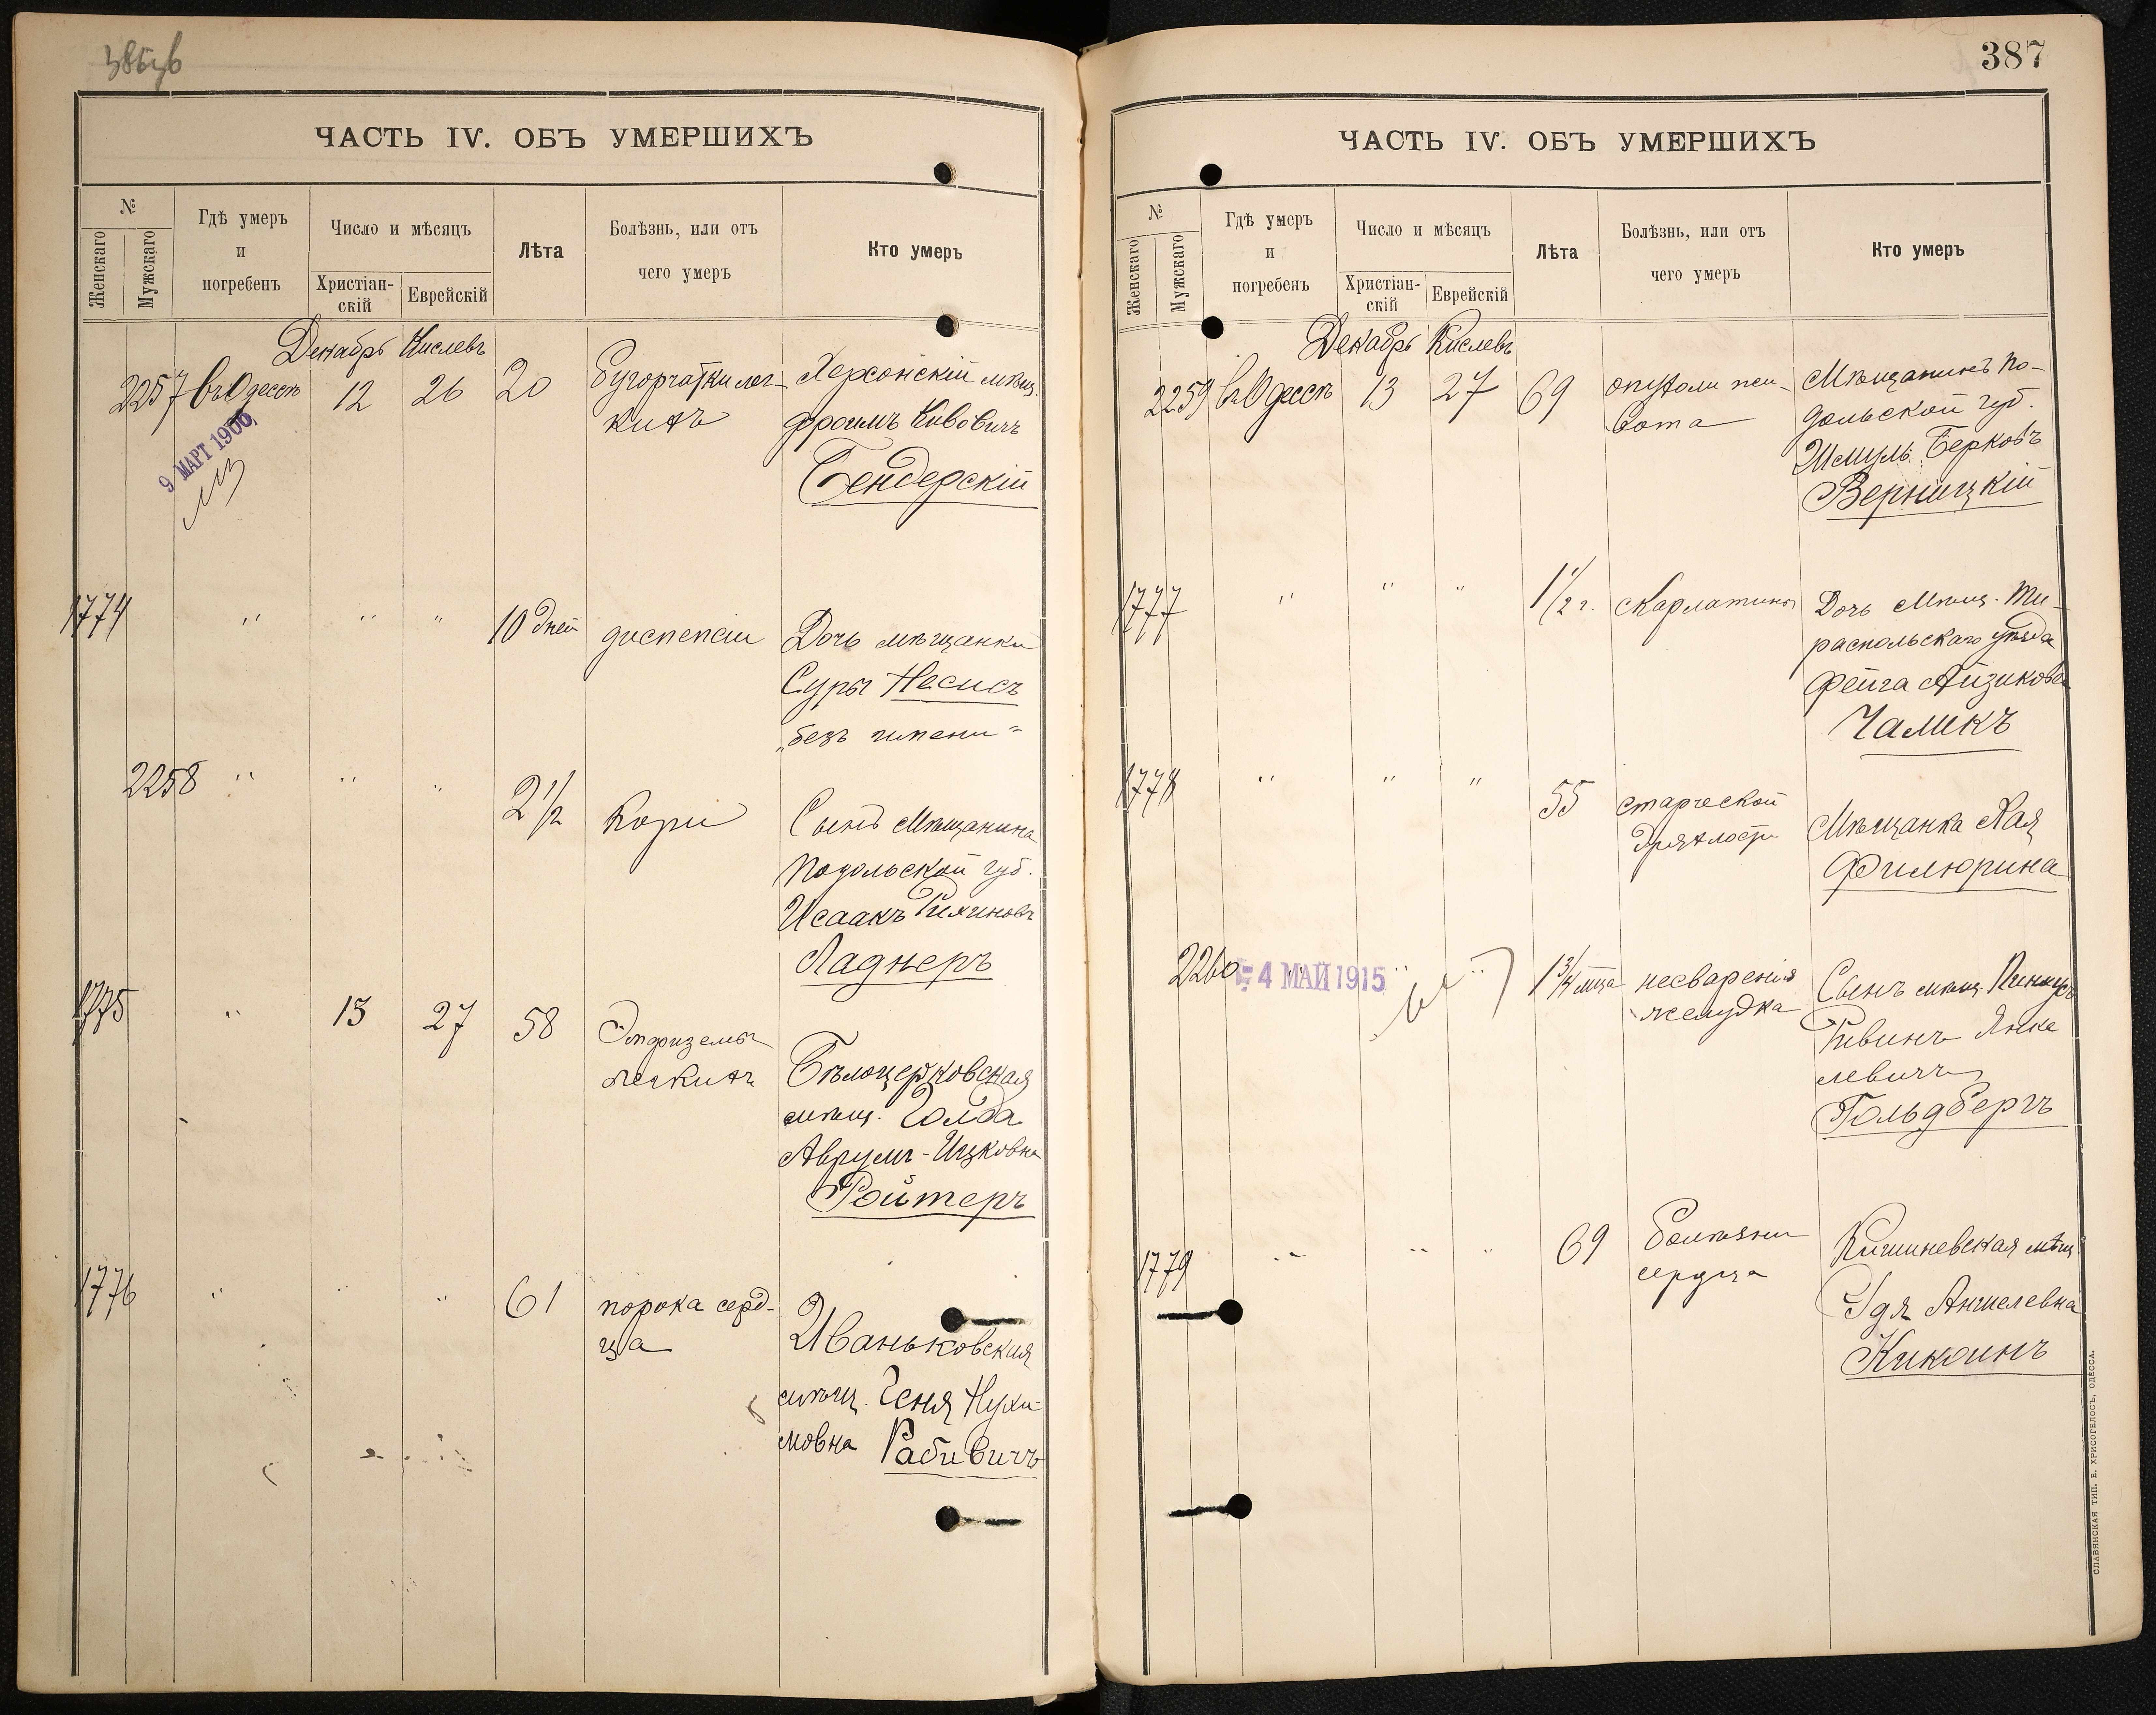 ЧАСТЬ IV. ОБЪ УМЕРШИХЪ
№
Женскаго
Мужскаго
Гдѣ умеръ
и
погребенъ
Число и мѣсяцъ
Христіан-
скій
Еврейскій
Лѣта
Болѣзнь, или отъ
чего умеръ
Кто умеръ
Декабрь Кислевъ
2257 въ Одессѣ 12 26 20 Бугорчатки лег- Херсонскій мѣщ.
кихъ Фроимъ
Бендерскій
9 МАРТ 1906
1774 " " " 10 дней диспепсіи Дочь мѣщанки
Суры Несисъ
„безъ имени"
2258 " " " 2 1/2 Кори Сынъ Мѣщанина
Подольской губ.
Исаакъ
Ладнеръ
1775 " 13 27 58 Эмфиземы
легкихъ Бѣлоцерковская
мѣщ. Голда
Аврумъ-Ицковна
Ройтеръ
1776 " " " 61 порока серд-
ца Иваньковская
мѣщ. Геня Нухи-
мовна Рабивичъ
387
ЧАСТЬ IV. ОБЪ УМЕРШИХЪ
№
Женскаго
Мужскаго
Гдѣ умеръ
и
погребенъ
Число и мѣсяцъ
Христіан-
скій
Еврейскій
Лѣта
Болѣзнь, или отъ
чего умеръ
Кто умеръ
Декабрь Кислевъ
2259 въ Одессѣ 13 27 69 опухоли жи- Мѣщанинъ По-
вота дольской губ.
Шмуль Берковъ
Верницкій
1777 " " " 1 1/2 г. скарлатины Дочь Мѣщ. Ти-
распольскаго уѣзда
Фейга Айзикова
Чаликъ
1778 " " " 55 старческой
дряхлости Мѣщанка Хая
Филюрина
2260 " " " 1 3/4 мца несваренія Сынъ мѣщ. Пинкусъ
4 МАЙ 1915
желудка Рывинъ Янке
левичъ
Гольдбергъ
1779 " " " 69 болѣзни Кишиневская мѣщ.
сердца Эдя Аншелевна
Кикоинъ
СЛАВЯНСКАЯ ТИП. Е. ХРИСОГЕЛОСЪ, ОДЕССА.